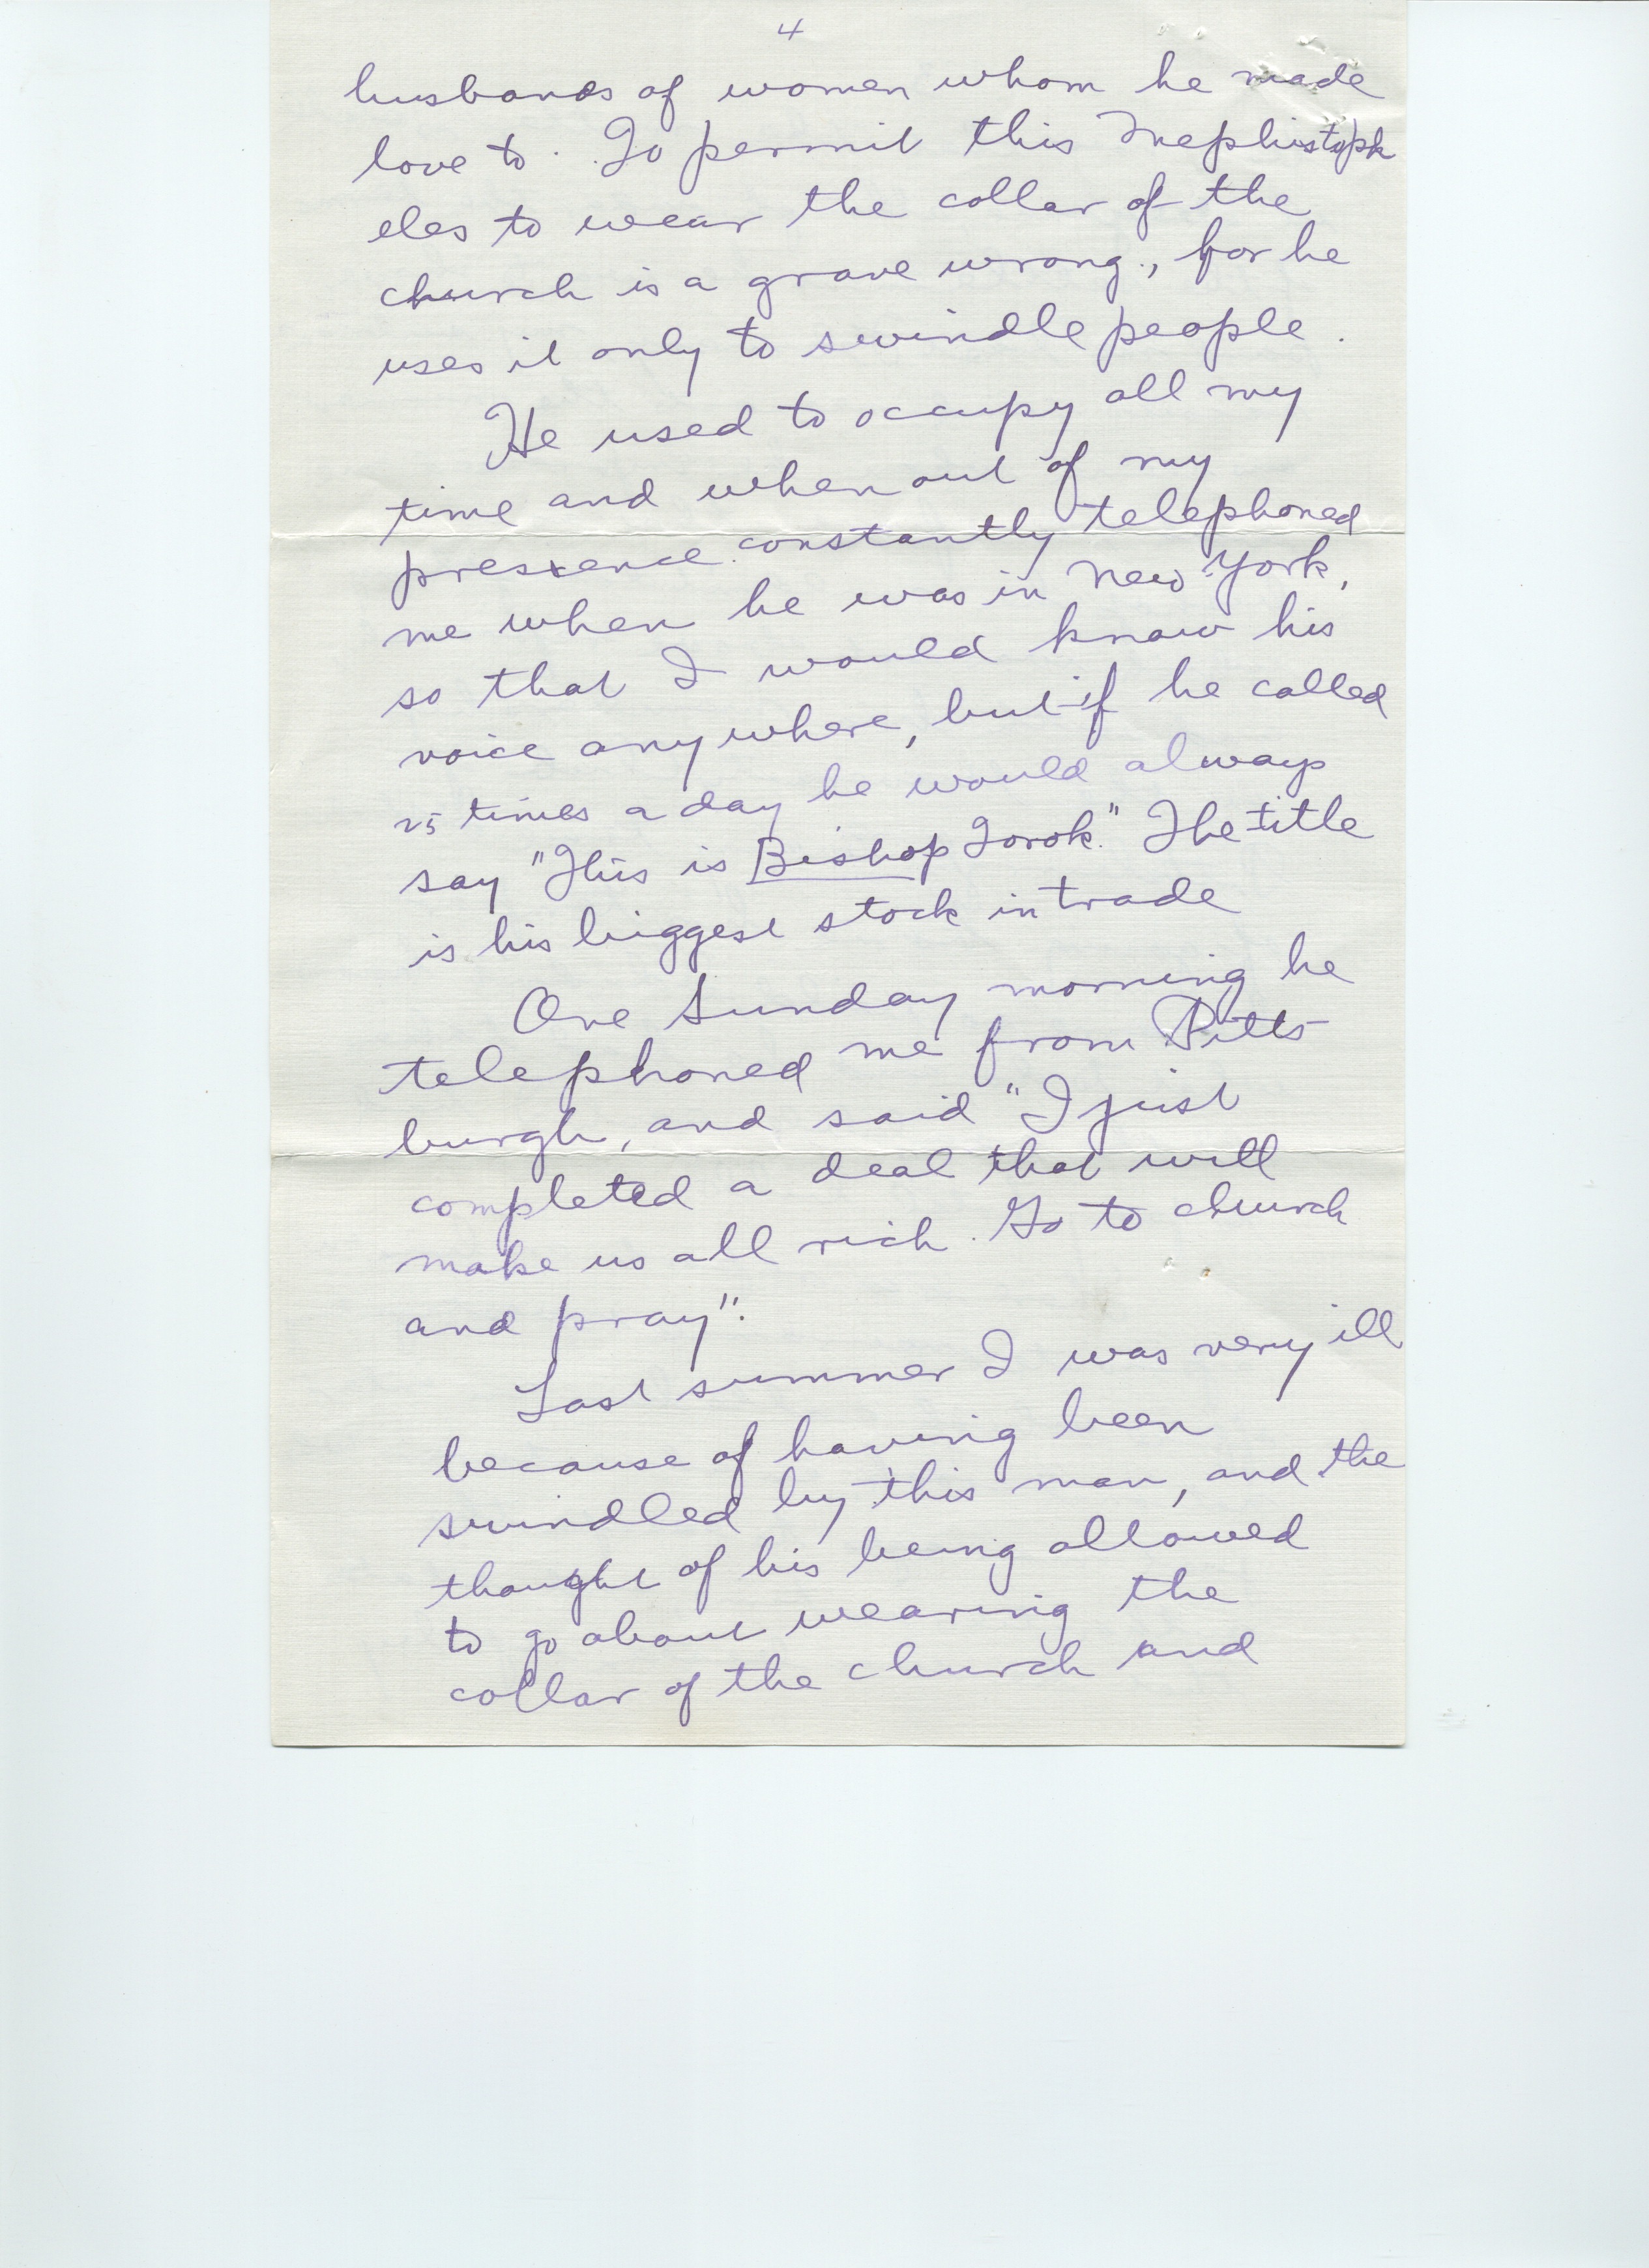 4
husbands of women whom he made
love to. To permit this Mephistoph
eles to wear the collar of the
church is a grave wrong., for he
uses it only to swindle people.
He used to occupy all my
time and when out of my
presence constantly telephoned
me when he was in New York,
so that I would know his
voice anywhere, but if he called
25 times a day he would always
say "This is Bishop Torok." The title
is his biggest stock in trade
One Sunday morning he
telephoned me from Pitts-
burgh, and said "I just
completed a deal that will
make us all rich. Go to church
and pray".
Last summer I was very ill
because of having been
swindled by this man, and the
thought of his being allowed
to go about wearing the
collar of the church and